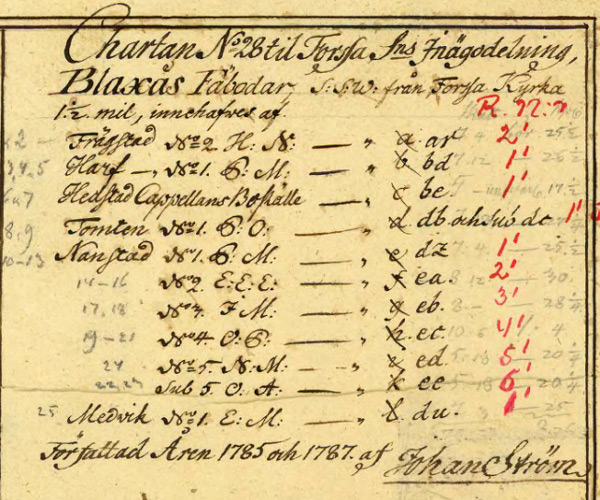 Chartan No 28 til Forssa Sns Inägodelning,
Blaxås Fäbodar, S:S:W: från Forssa Kyrka
1½ mil, innehafves af R. N:r
Frägstad No 2. H: N: — „ a ar 2'
Harf —, No 1. P: M: — „ b bd 1'
Hedstad Cappellans Boställe — „ c be 1'
Tomten No 1. P: O: — „ d db och sub dc 1'
Nanstad No 1. P: M: — „ e dz 1'
14-16 No 2 E: E: E: — „ f ea. 2'
17, 18 No 3. F M: — „ g eb. 3'
19-21 No 4 O: P: — „ h ec 4'
No 5. N: M: — „ i ed. 5'
22, 23 Sub 5. O: A: — „ k ee 6'
25 Medvik No 1. E: M: — „ l du. 1'
Författad Åren 1785 och 1787. af Johan Ström